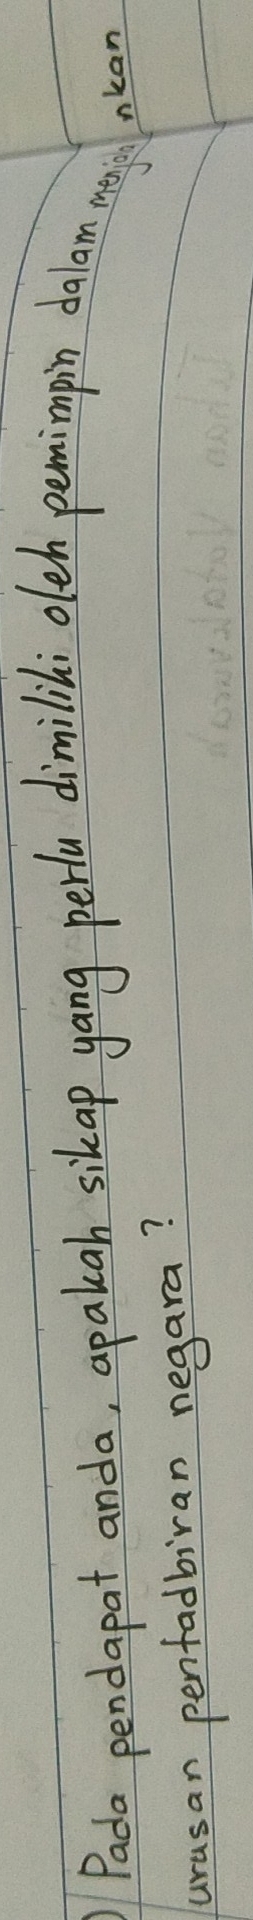 ) Pada pendapat anda, apakah sikap yang perlu dimiliki oleh pemimpin dalam menjalankan
urusan pentadbiran negara?